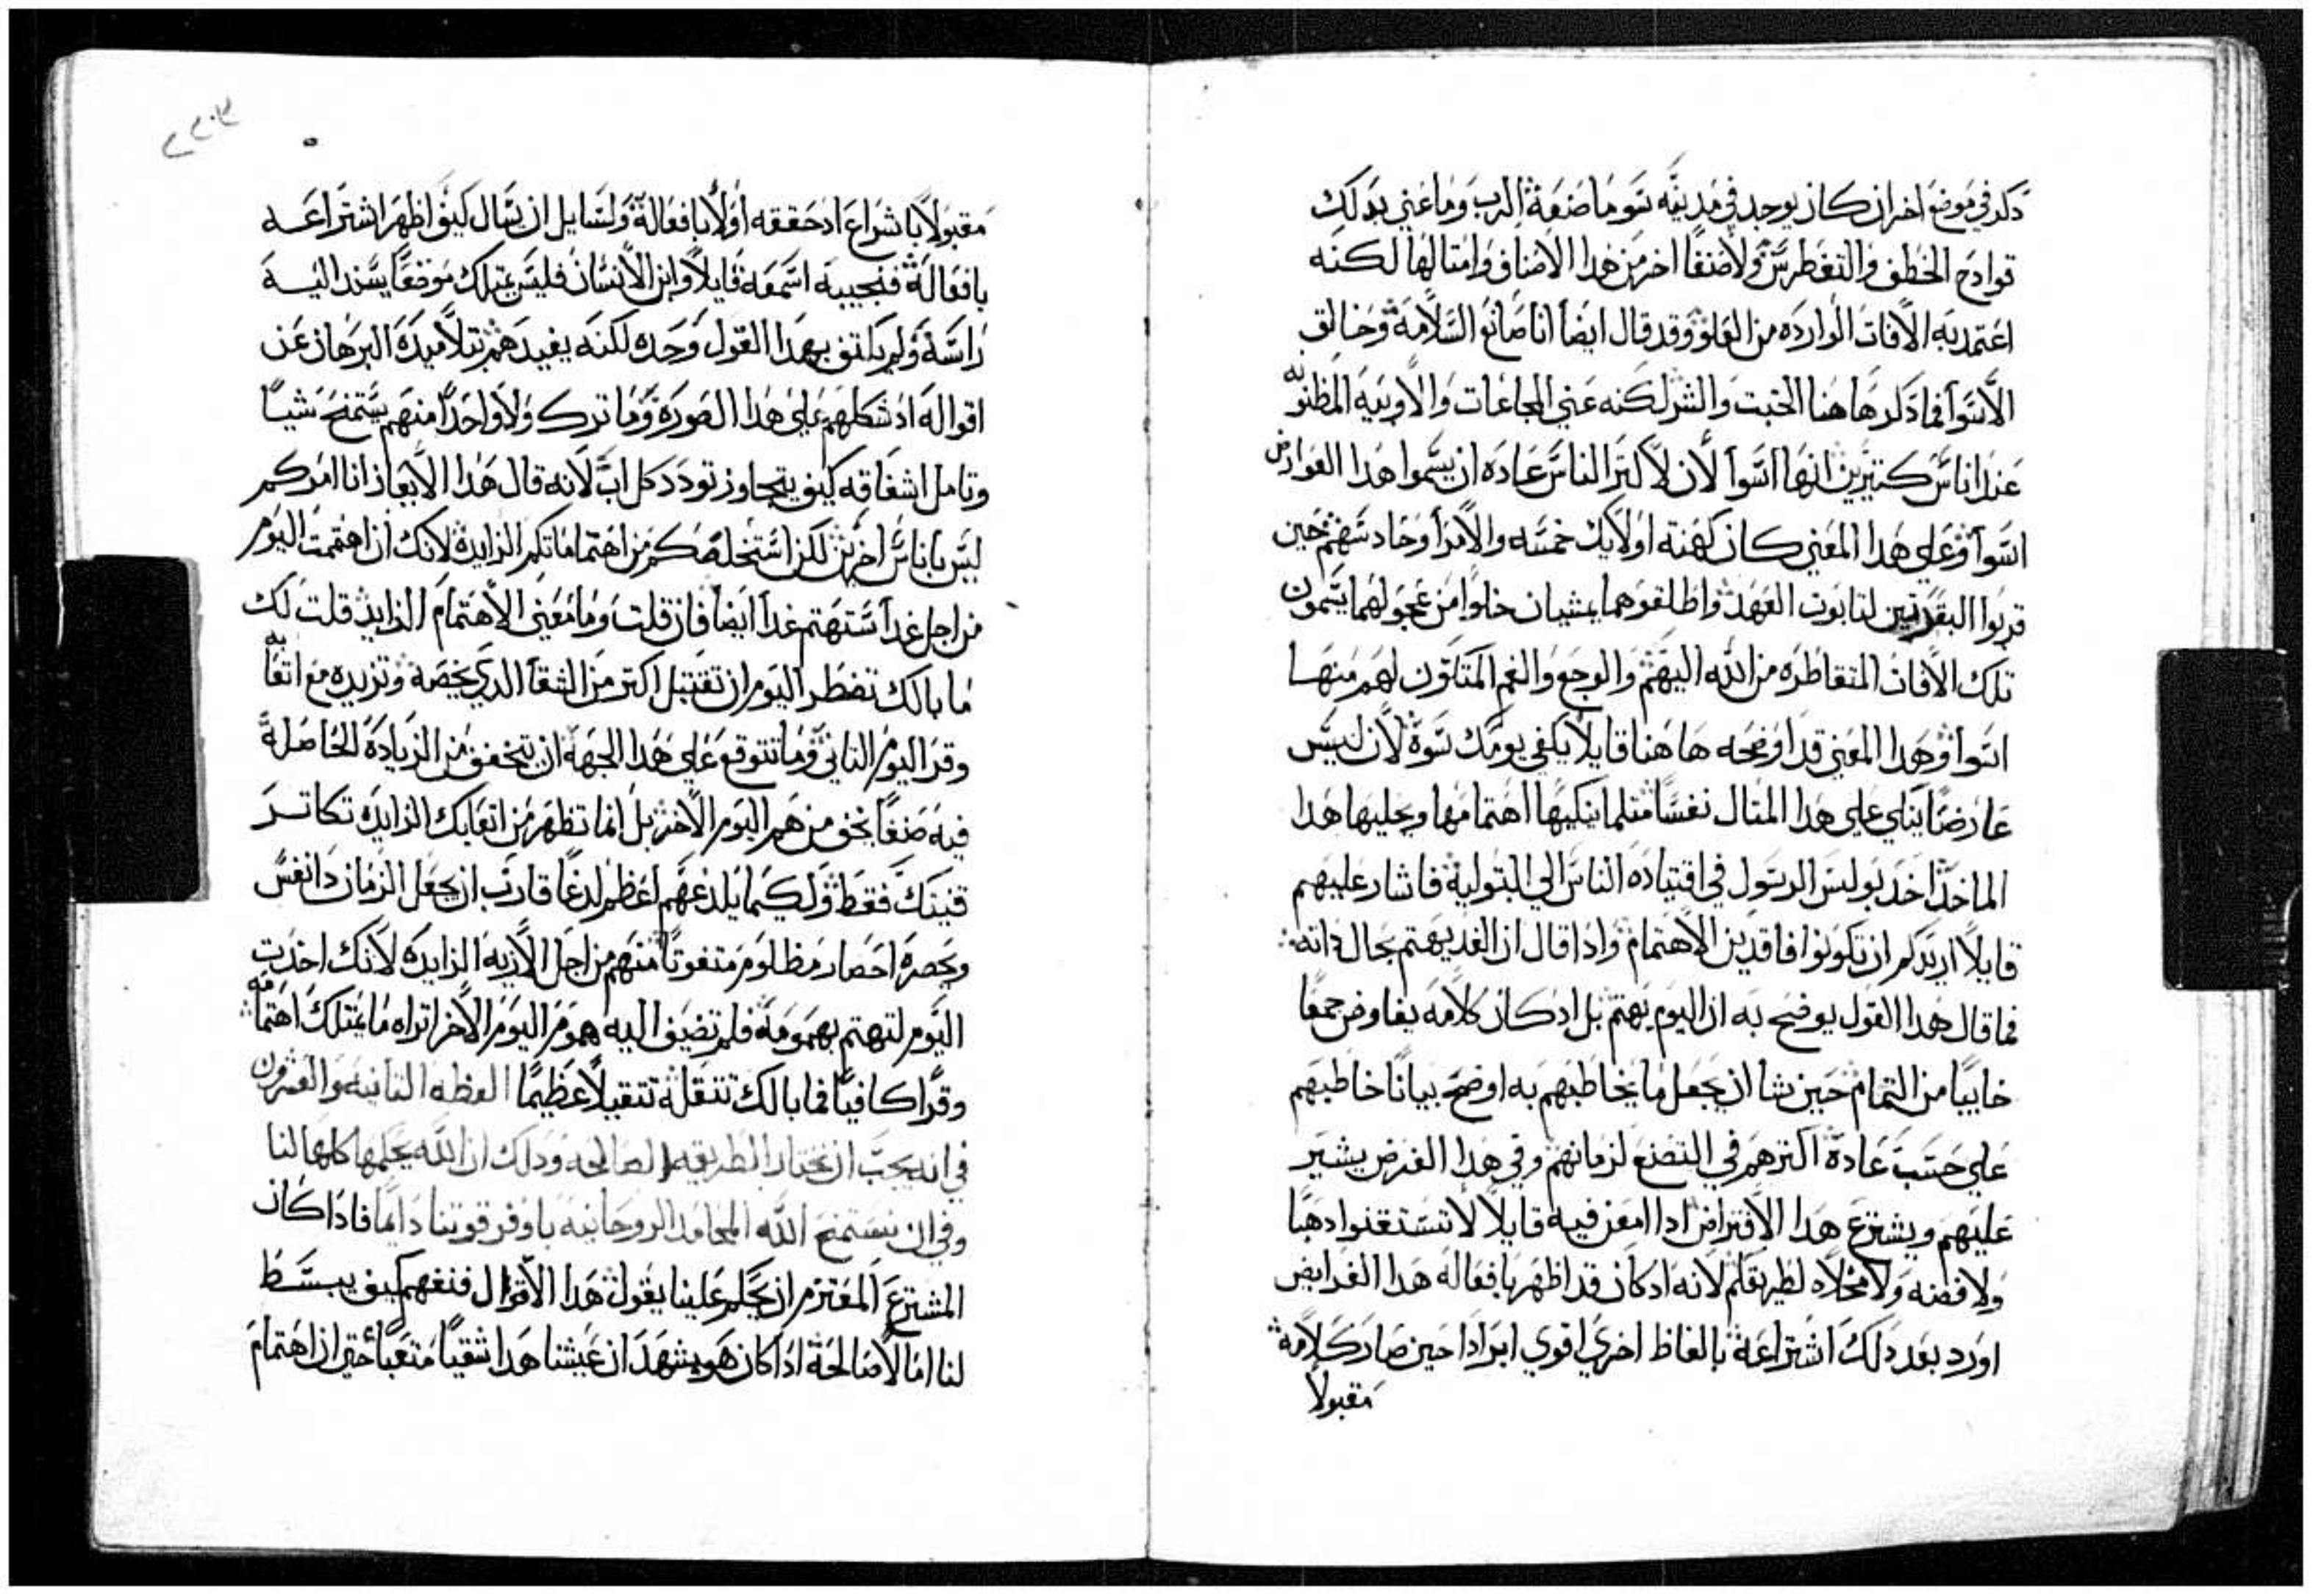 ذكر في موضع اخر ان كان يوجد في مدينه سو ما صنعة الرب وما عني بذلك
توادح الخطف والتغطرس ولا صنفا اخر من هدا الاصناف وامتالها لكنه
اعتمد به الافات الوارده من العلو وقد قال ايضا انا صانع السلامة وخالق
الاسوا فما ذكر هاهنا الخبت والشر لكنه عني المجاعات والاوبيه المظنون به
عند اناس كتيرين انها اسوا لان لاكتر الناس عاده ان يسموا هدا العوارض
اسوا وعلي هدا المعني كان كهنة اولايك خمسه والامرا وحادسهم حين
قربوا البقرتين لتابوت العهد واطلقوهما يمشيان خلوا من عجولهما يسمون
تلك الافات المتقاطره من الله اليهم والوجع والغم المتكون لهم منها
اسوا وهدا المعني قد اوضحه هاهنا قايلا يكفي يومك سوة لان ليس
عارضا يبكي علي هدا المتال نفسا متلما يبكيها اهتمامها ويحليها هدا
الماخد اخد بولس الرسول في اقتياده الناس الي البتولية فاشار عليهم
قايلا اريدكم ان تكونوا فاقدين الاهتمام وادا قال ان الغد يهتم بحال داته
فما قال هدا القول يوضح به ان اليوم يهتم بل اد كان كلامه يفاوض جمعا
خاييا من التمام حين شا ان يجعل ما يخاطبهم به اوضح بيانا خاطبهم
علي حسب عادة اكترهم في التضنع لزمانهم وفي هدا الغرض يشير
عليهم ويشترع هدا الافتراض ادا امعن فيه قايلا لا تستقنوا دهبا
ولا فضه ولا مخلاه لطريقكم لانه اد كان قد اظهر بافعاله هدا الفرايض
اورد بعد دلك اشتراعة بالفاظ اخري اقوي ايرادا حين صار كلامة
مقبولا
مقبولا باشراع اد حققه اولا بافعالة ولسايل ان يسال كيف اظهر اشتراعه
بافعالة فنجيبه اسمعه قايلا وابن الانسان فليس يمتلك موضعا يسند اليه
راسة ولم يكتف بهدا القول وحده لكنه يفيدهم بتلاميده البرهان عن
اقواله اد شكلهم علي هدا الصورة وما ترك ولا واحدا منهم يستمنح شيا
وتامل اشفاقه كيف يتجاوز تودد كل اب لانه قال هدا الايعاز انا امركم
ليس باناس اخرين لكن استخلصكم من اهتماماتكم الزايدة لانك ان اهتممت اليوم
من اجل غدا ستهتم غدا ايضا فان قلت وما معني الاهتمام الزايد قلت لك
ما بالك تضطر اليوم ان تقتبل اكتر من الشقا الدي يخصة وتزيده مع اتعابه
وقر اليوم التاني وما تتوقع علي هدا الجهة ان تخفف من الزيادة الحاصلة
فيه صنفا نحو من هم اليوم الاخر بل انما تظهر من اتعابك الزايده تكاتر
قنيتك فقط ولكيما يلدعهم اعظم لدغا قارب ان يجعل الزمان دا نفس
ويحصره احصار مظلوم متغوتا منهم من اجل الاذيه الزايده لانك اخدت
اليوم لتهتم بهمومة فلم تضيف اليه هموم اليوم الاخر اتراه ما يمتلك اهتمامه
وقرا كافيا فما بالك تتقلة تتقيلا عظيما العظه التانيه والعشرون
في انه يجب ان نختار الطريقه الصالحه ودلك ان الله يحلمها كلها لنا
وفي ان نستمنح الله المحامد الروحانيه باوفر قوتنا دايما فادا كان
المشترع المعتزم ان يحكم علينا يقول هدا الاقوال فنفهم كيف يبسط
لنا امالا صالحة ادا كان هو يشهد ان عيشنا هدا شقيا متعبا حتي ان اهتمام